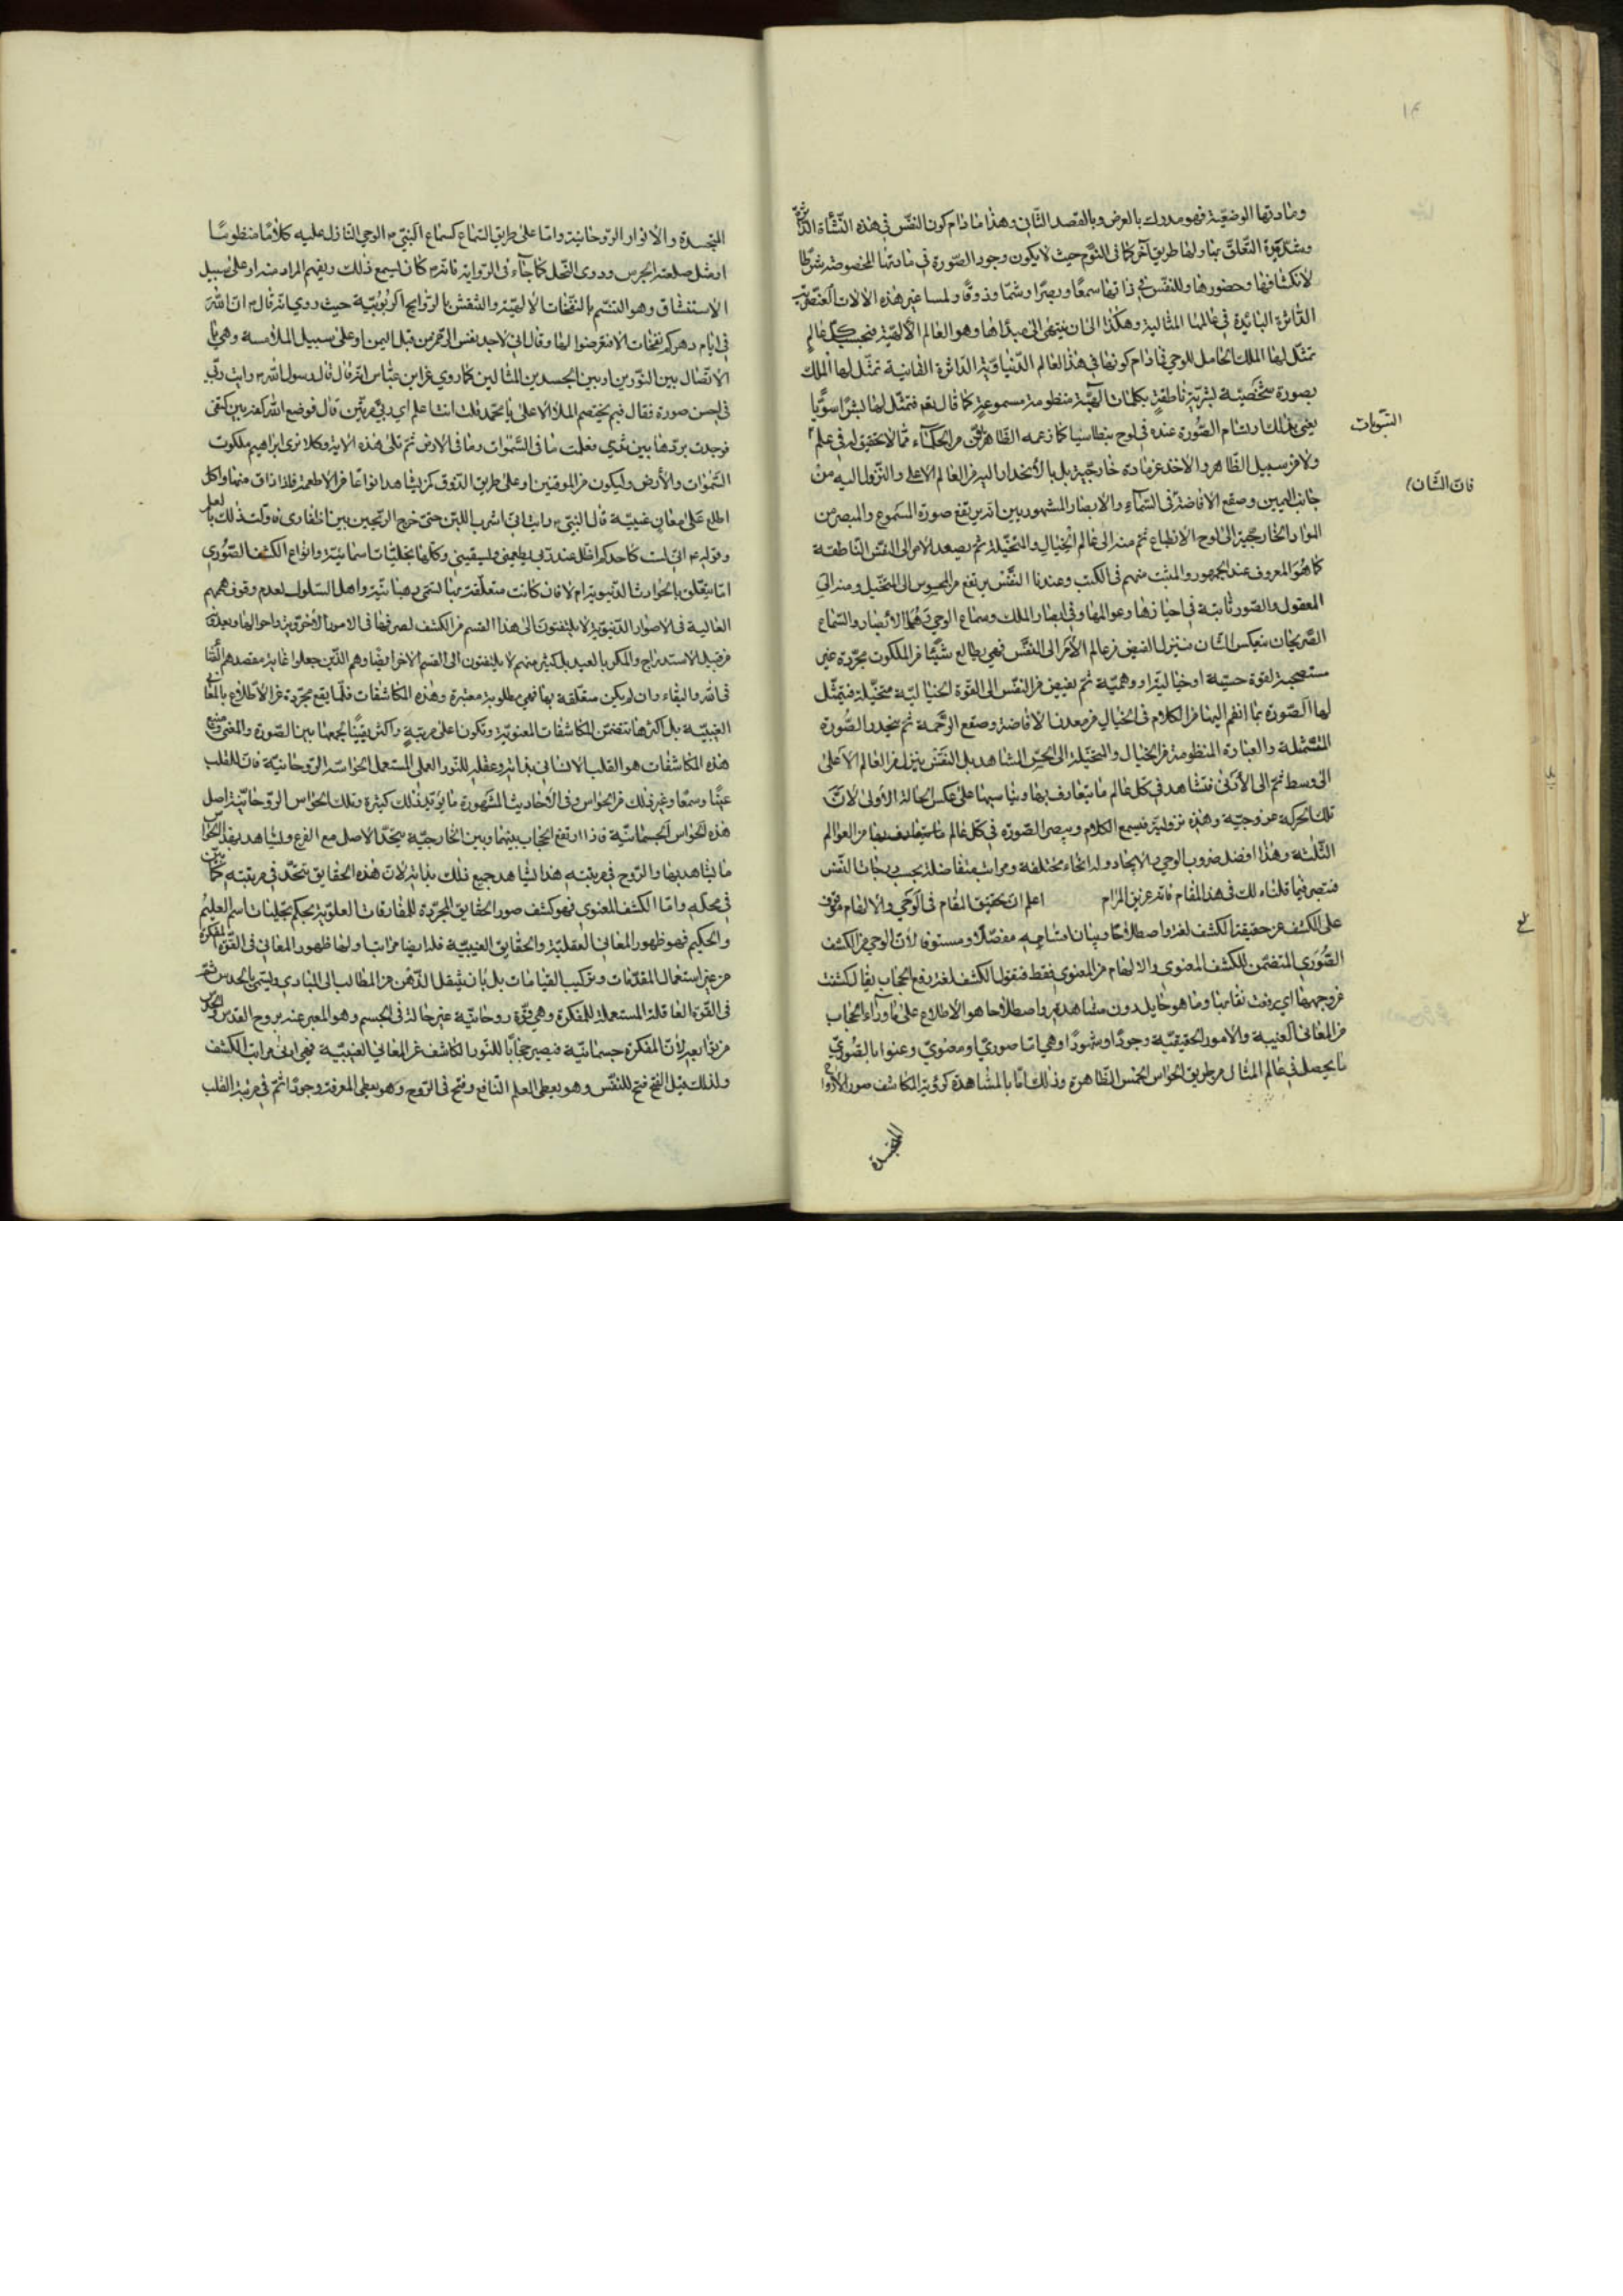 ومادتها الوضعيّة فهو مدرك بالعرض وبالقصد الثّاني وهذا مادام كون النفس في هذه النّشأة الدّاثرة
وشدّة التعلّق بها ولها طريق آخر كما في النّوم حيث لا يكون وجود الصّورة في مادتها المخصوصة شرطا
لانكشافها وحضورها وللنّفس في ذاتها سمعًا وبصرًا وشمّا وذوقًا ولمسا غير هذه الالات العنصريّة
الدّاثرة البائدة في عالمها المثالية وهكذا الى ان ينتهى الى مبدأها وهو العالم الالهيّة فبحسب كلّ عالم
تمثّل لها الملك الحامل للوحي فمادام كونها في هذا العالم الدّنياويّة الدّاثرة الفانية تمثّل لها الملك
بصورة شخصيّة بشريّة ناطقة بكلمات الهيّة منظومة مسموعة كما قال تعم فتمثّل لها بشرًا سويًّا
يعنى بذلك ارتسام الصّورة عنده في لوح بنطاسيا كما زعمه الظاهريّون من الحكماء ممّا لا تحقيق له في علم
التبوبات
ولا من سبيل الظّاهر والاخذ عن مادة خارجيّة بل بالانحدار اليه من العالم الاعلى والنّزول اليه من
فان الشّان
جانب اليمين وصقع الافاضة في السّماء والابصار المشهورين انه يرتفع صورة المسموع والمبصر من
المواد الخارجيّة الى لوح الانطباع ثمّ منه الى عالم الخيال والمتخيّلة ثم يصعد الامر الى النفس النّاطقة
كما هو المعروف عند الجمهور والمثبت منهم في الكتب وعندنا النّفس يرتفع من المحسوس الى المتخيّل ومنه الى
المعقول والصّور ثابتة في احيازها وعوالمها وفي ابصار الملك وسماع الوحي وهما الابصار والسّماع
الصّريحان ينعكس الشّان فينزل الفيض من عالم الأمر الى النفس فهي يطالع شيئًا من الملكوت مجرّدة غير
مستصحبة لقوة حسيّة او خياليّة او وهميّة ثم يفيض من النفس الى القوّة الخياليّة متخيّلة فيتمثّل
لها الصّورة بما انضم اليها من الكلام في الخيال من معدن الافاضة وصقع الرّحمة ثم ينحدر الصّورة
المتمثّلة والعبارة المنظومة من الخيال والمتخيّلة الى الحسّ المشاهد بل النّفس ينزل من العالم الاعلى
الى وسط ثمّ الى الأدنى فتشاهد في كلّ عالم ما يتعارف بها ويناسبها على عكس الحالة الأولى لانّ
تلك الحركة عروجيّة وهذه نزوليّة فيسمع الكلام ويبصر الصّورة في كلّ عالم من العوالم
الثّلثة وهذا افضل ضروب الوحي والايحاء وله انحاء مختلفة ومراتب متفاضلة بحسب درجات النّفس
فتبصر فيما قلناه لك في هذا المقام فانّه عزيز المرام اعلم ان تحقيق المقام في الوحي والالهام موقوف
على الكشف عن حقيقة الكشف لغة واصطلاحًا وبيان اقسامه مفصّلًا ومستوفى لأنّ الوحي من الكشف
الصّوري المتضمّن للكشف المعنوي والالهام من المعنوي فقط فنقول الكشف لغة رفع الحجاب يقال كشفت
عن وجهها اي رفعت نقابها وما هو حايل دون مشاهدته واصطلاحا هو الاطلاع على ما وراء الحجاب
من المعاني الغيبية والامور الحقيقيّة وجودًا او شهودًا وهي امّا صوري او معنويّ وعنوا بالصّوريّ
ما يحصل في عالم المثال من طريق الحواس الخمس الظّاهرة وذلك امّا بالمشاهدة كرؤية المكاشف صور الأرواح
المتجسدة
المتجسدة والأنوار الروحانية وامّا على طريق السّماع كسماع النّبي ص الوحي النّازل عليه كلامًا منظومًا
او مثل صلصلة الجرس ودوي النّحل كما جاء في الرّواية فانّه ص كان يسمع ذلك ويفهم المراد منه او على سبيل
الاستنشاق وهو التنسّم بالنّفحات الالهيّة والتنفس بالرّوايح الرّبوبيّة حيث روي انّه قال ص انّ للّه
في ايّام دهركم نفحات الا فتعرضوا لها وقال انّي لاجد نفس الرّحمن من قبل اليمن او على سبيل الملامسة وهي
الاتّصال بين النّورين او بين الجسدين المثالين كما روي عن ابن عبّاس انّه قال قال رسول اللّه ص رايت ربّي
في احسن صورة فقال فيم يختصم الملأ الاعلى يا محمّد قلت انت اعلم اي ربّي مرّتين قال فوضع اللّه كفّه بين كتفي
فوجدت بردها بين ثديي فعلمت ما في السّموات وما في الارض ثم تلى هذه الاية وكذلك نرى ابراهيم ملكوت
السّموات والأرض وليكون من الموقنين او على طريق الذّوق كمن يشاهد انواعًا من الاطعمة فلذا ذاق منها واكل
اطلع على معان غيبيّة قال النّبي ص رايت انّي اشرب اللّبن حتى خرج الرّي من بين اظفاري
وقوله ص انّي لست كاحدكم اظلّ عند ربّي يطعمني ويسقيني وكلّها تجلّيّات اسمائيّة وانواع الكشف الصّوري
امّا يتعلّق بالحوادث الدّنيويّة ام لا فان كانت متعلّقة بها تسمّى رهبانيّة واهل السّلوك لعدم وقوف هممهم
العالية في الامور الدّنيويّة لا يلتفتون الى هذا القسم من الكشف لصرفها في الامور الأخرويّة واحوالها
من قبيل الاستدراج والمكر بالعبد بل كثير منهم لا يلتفتون الى القسم الاخر ايضًا وهم الّذين جعلوا غاية مقصدهم الفناء
في اللّه والبقاء وان لم يكن متعلّقة بها فهي مطلوبة معتبرة وهذه المكاشفات قلّما يقع مجرّدة عن الاطّلاع بالمعاني
الغيبيّة بل اكثرها تتضمّن المكاشفات المعنويّة وتكون اعلى مرتبة واكثر يقينًا لجمعها بين الصّورة والمعنى ومنبع
هذه المكاشفات هو القلب الانساني بذاته وعقله للنّور العملي المستعمل لحواسّه الرّوحانيّة فانّ للقلب
عينًا وسمعًا وغير ذلك من الحواس وفي الأحاديث المشهورة ما يؤيّد ذلك كثيرة وتلك الحواس الرّوحانيّة اصل
هذه الحواس الجسمانيّة فاذا ارتفع الحجاب بينهما وبين الخارجيّة يتّحد الاصل مع الفرع ويشاهد بهذه الحواس
ما يشاهد بها والرّوح في مرتبته هذا يشاهد جميع ذلك بذاته لانّ هذه الحقايق تتّحد في مرتبته كما
في محلّه وامّا الكشف المعنوي فهو كشف صور الحقايق المجرّدة للمفارقات العلويّة بحكم تجلّيات اسم العليم
والحكيم فهو ظهور المعاني العقليّة والحقايق الغيبيّة فله ايضا مراتب اولها ظهور المعاني في القوّة المفكّرة
من غير استعمال المقدّمات وتركيب القياسات بل بان ينتقل الذّهن من المطالب الى المبادي ويسمّى بالحدس ثم
في القوّة العاقلة المستعملة للمفكرة وهي قوّة روحانيّة غير حالّة في الجسم وهو المعبر عنه بروح القدس
لأنّ المفكرة جسمانيّة فيصير حجابًا للنّور الكاشف عن المعاني الغيبيّة فهي ادنى مراتب الكشف
ولذلك قيل الفتح فتح للنفس وهو يعطي العلم النّافع وفتح في الرّوح وهو يعطي المعرفة وجودًا ثم في مرتبة القلب